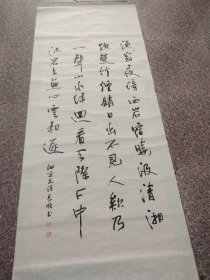 漁翁夜傍西岩宿曉汲清湘
燃楚竹煙銷日出不見人欸乃
一聲山水绿回看天際下中
流岩上無心雲相逐 柳宗元詩